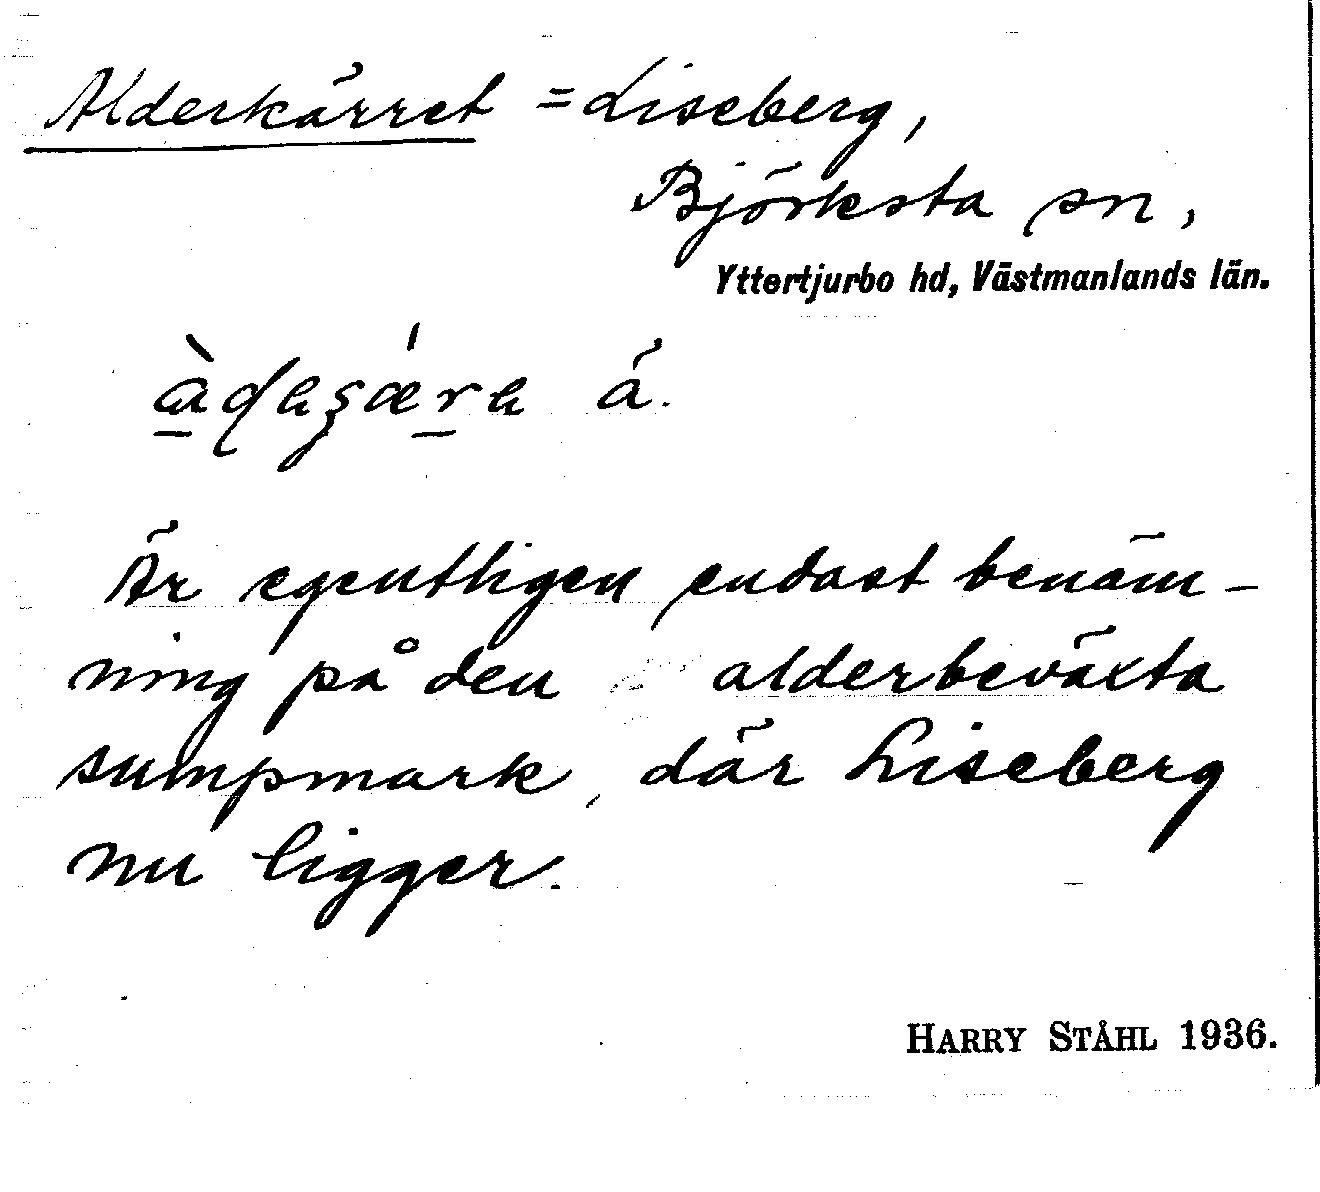 Alderkärret = Liseberg,
Björksta sn,
Yttertjurbo hd, Västmanlands län.
ä.
Är egentligen endast benäm-
ning på den alderbeväxta
sumpmark, där Liseberg
nu ligger.
HARRY STÅHL 1936.